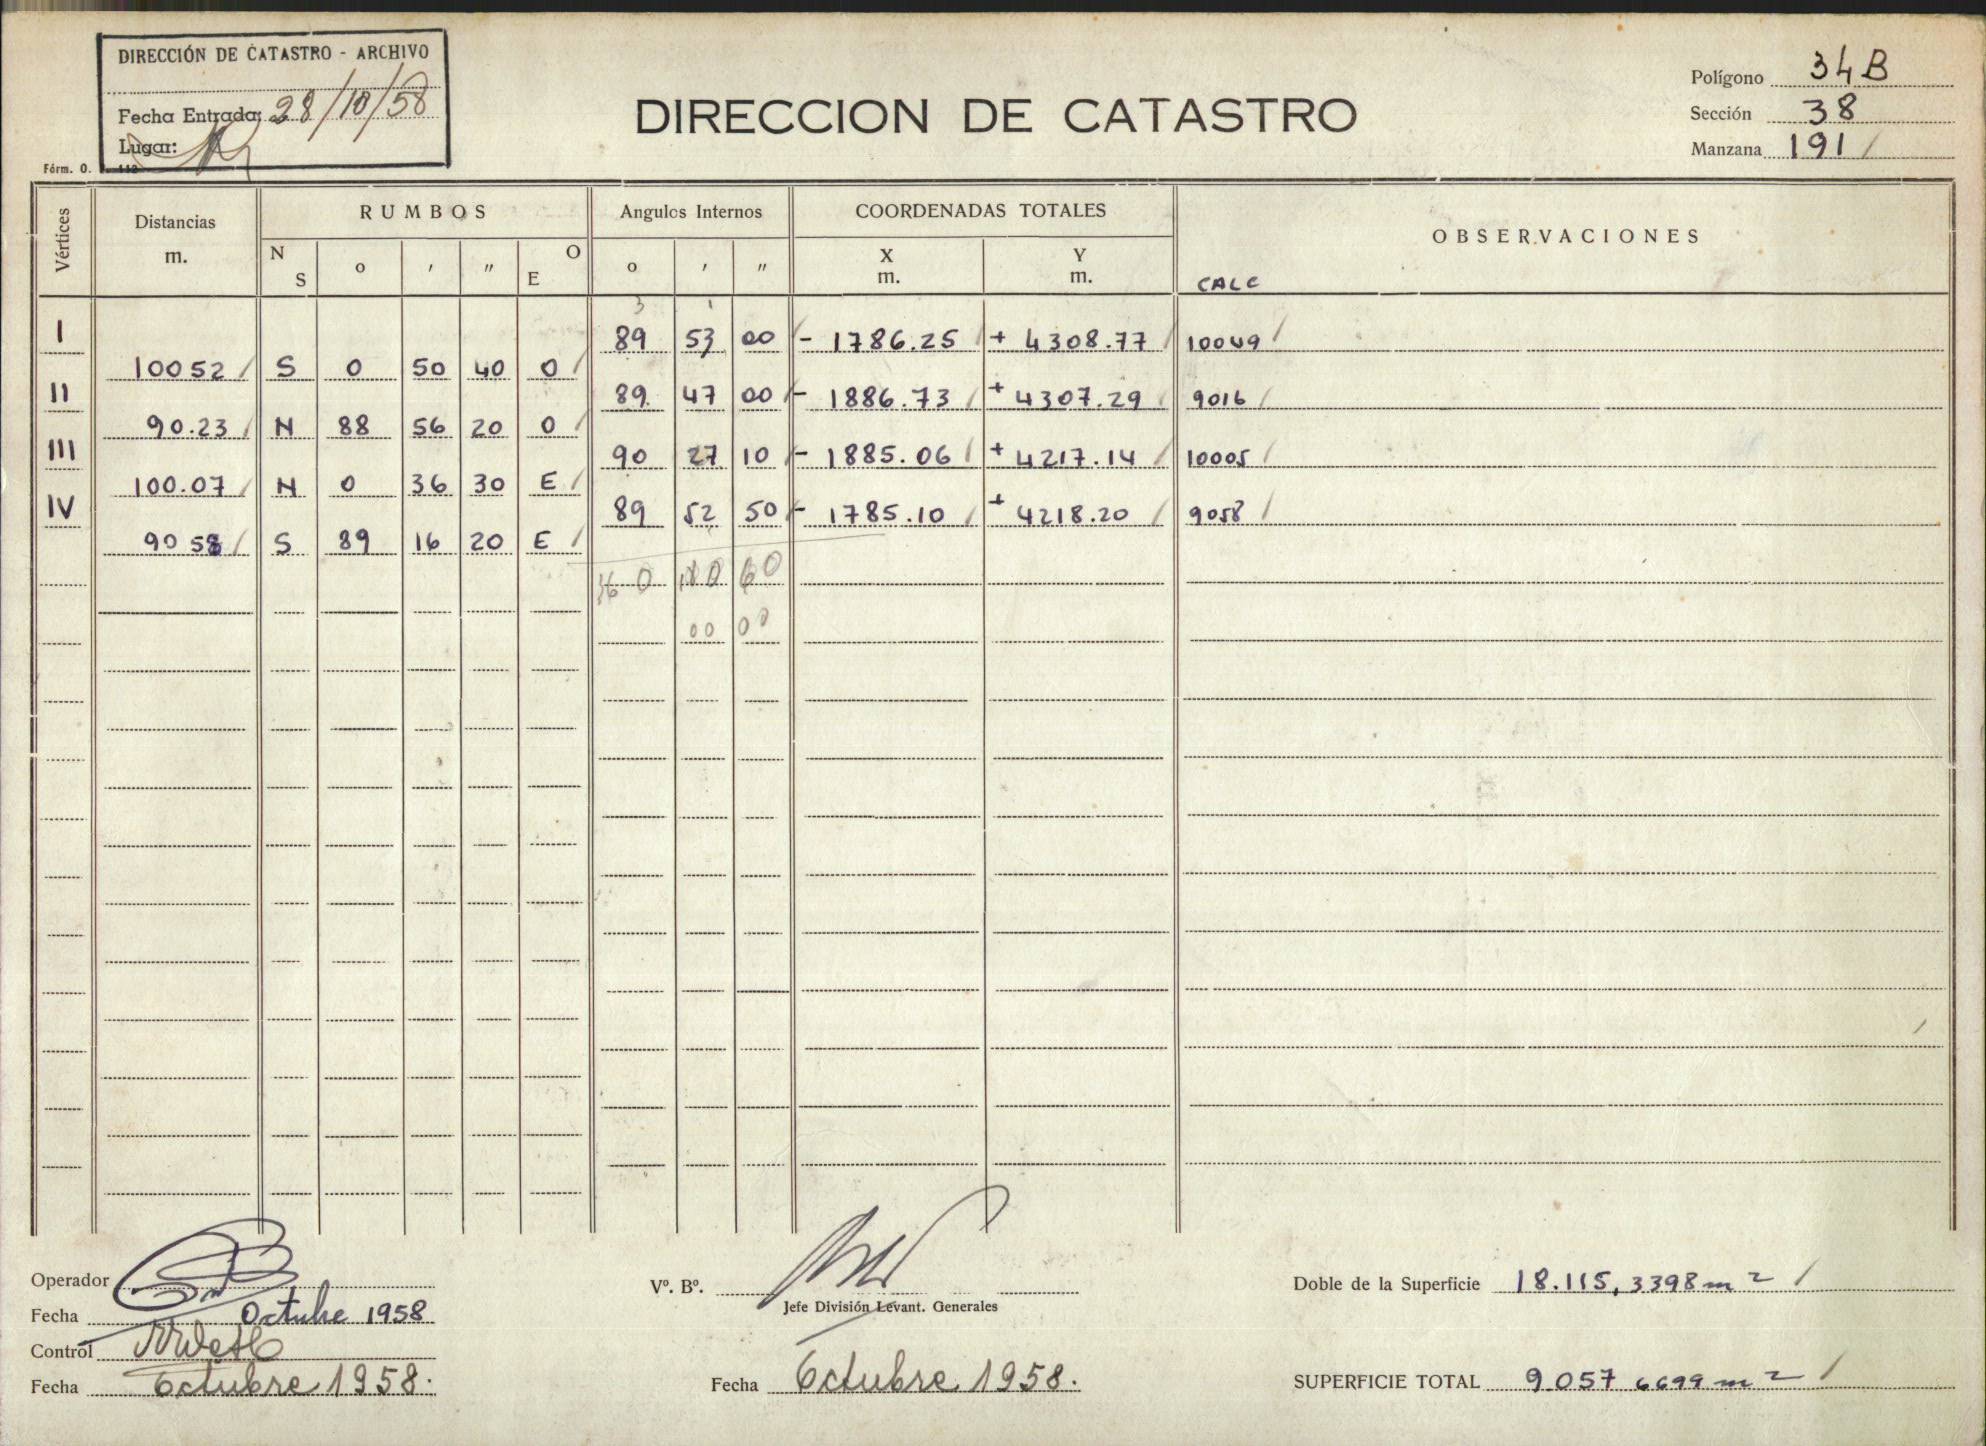 DIRECCIÓN DE CATASTRO - ARCHIVO
Fecha Entrada: 28/10/58
Lugar:
Fórm. O.
DIRECCION DE CATASTRO
Polígono 34B
Sección 38
Manzana 191
Vértices Distancias m. RUMBOS Angulos Internos COORDENADAS TOTALES OBSERVACIONES
N S o ' " O E o ' " X m. Y m. CALC
I 89 53 00 - 1786.25 + 4308.77 10049
10052 S 0 50 40 O
II 89 47 00 - 1886.73 + 4307.29 9016
90.23 N 88 56 20 O
III 90 27 10 - 1885.06 + 4217.14 10005
100.07 N 0 36 30 E
IV 89 52 50 - 1785.10 + 4218.20 9058
9058 S 89 16 20 E
60
00 00
Operador
Fecha Octubre 1958
Control
Fecha Octubre 1958.
Vº. Bº.
Jefe División Levant. Generales
Fecha Octubre 1958.
Doble de la Superficie 18.115,3398 m2
SUPERFICIE TOTAL 9.057 6699 m2